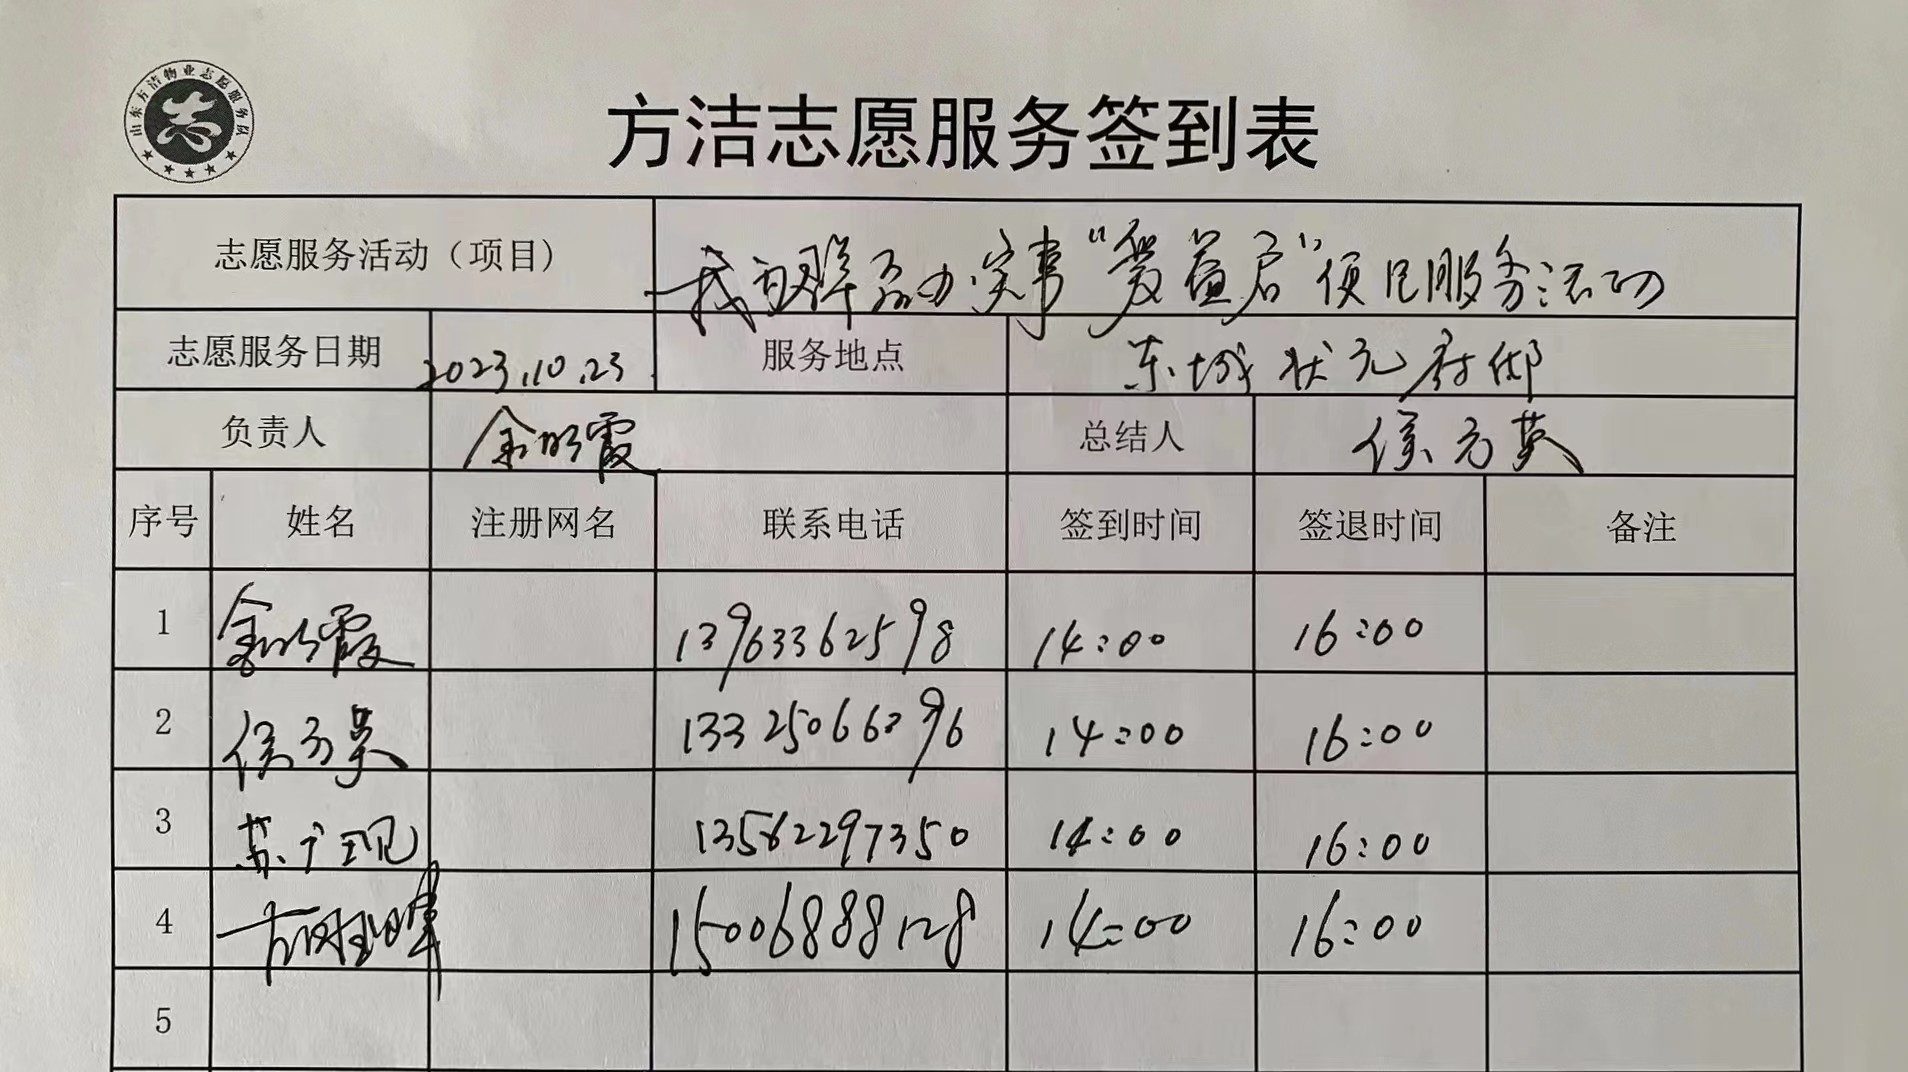 山东方洁物业志愿服务队
志
方洁志愿服务签到表
志愿服务活动（项目） 我为群众办实事“爱益启”便民服务活动
志愿服务日期 2023.10.23. 服务地点 东城状元府邸
负责人 金明霞 总结人 侯方英
序号 姓名 注册网名 联系电话 签到时间 签退时间 备注
1 金明霞 13963362598 14:00 16:00
2 侯方英 13325066296 14:00 16:00
3 苏广现 13562297350 14:00 16:00
4 15006888128 14:00 16:00
5